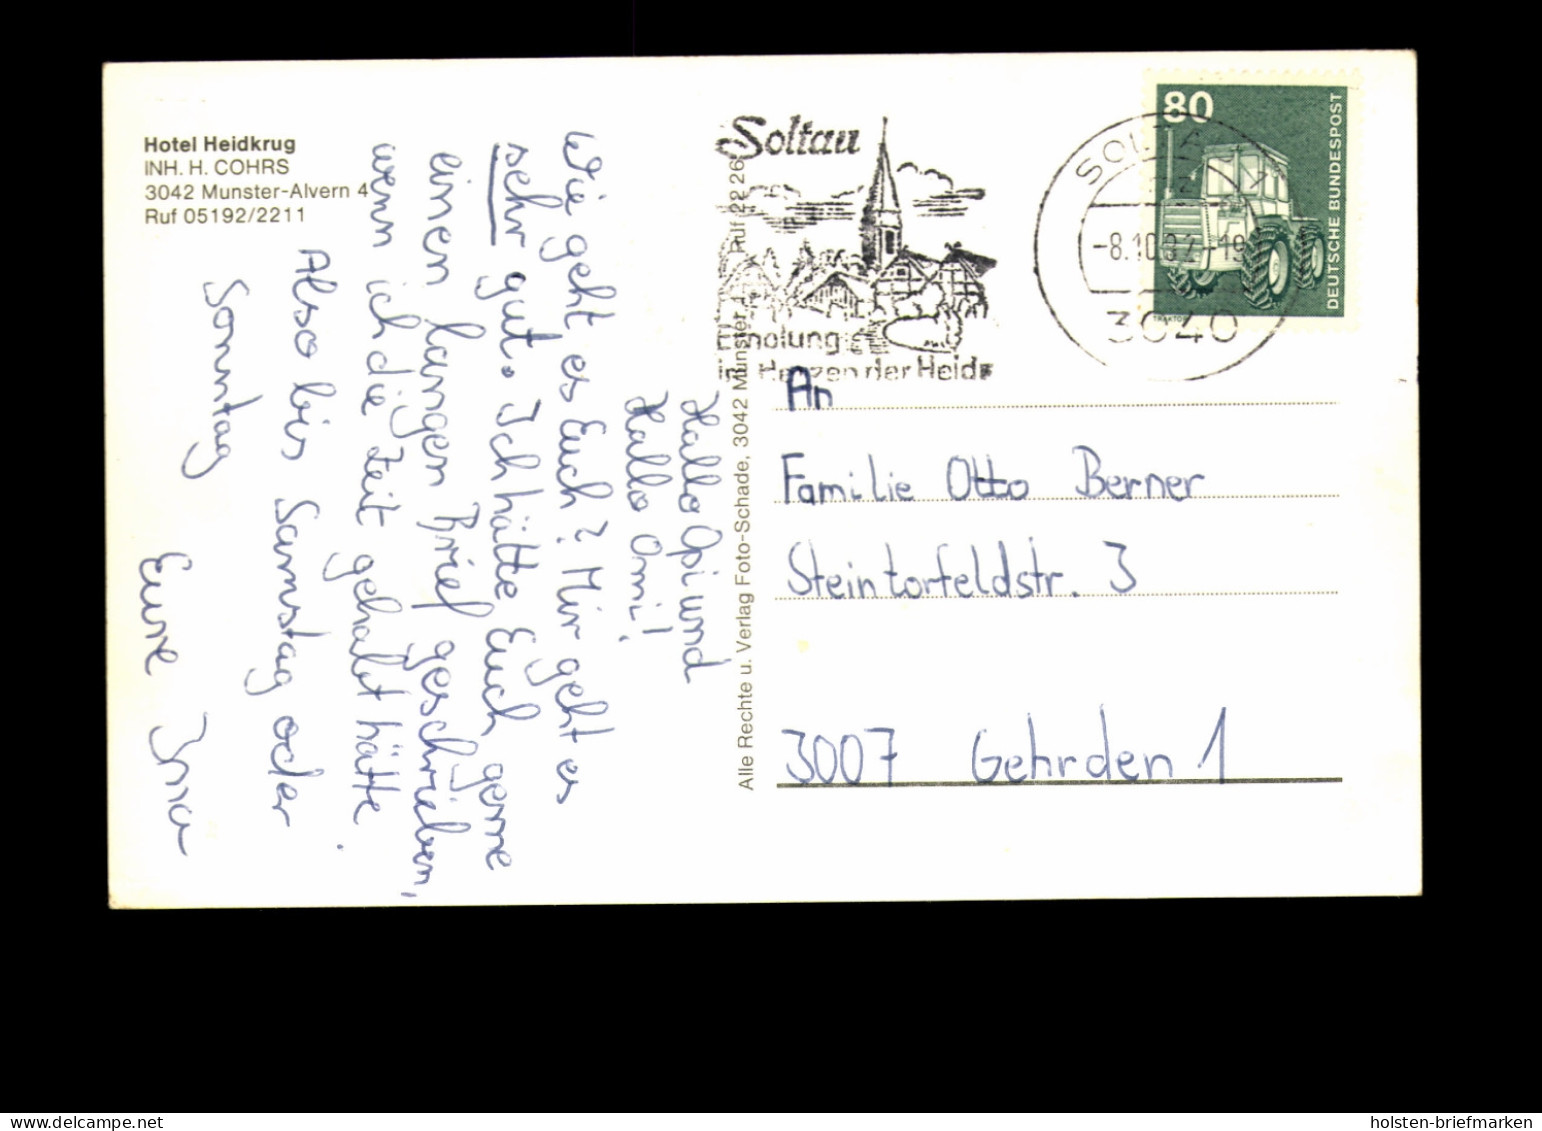 Hotel Heidkrug
INH. H. COHRS
3042 Munster-Alvern 4
Ruf 05192/2211
Hallo Opi und
Hallo Omi!
Wie geht es Euch? Mir geht es
sehr gut. Ich hätte Euch gerne
einen langen Brief geschrieben,
wenn ich die Zeit gehabt hätte.
Also bis Samstag oder
Sonntag
Eure Ina
Alle Rechte u. Verlag Foto-Schade, 3042 Munster Ruf 22 26
Soltau
Erholung
im Herzen der Heide
SOLTAU 1
-8.10.82-19
3040
80
DEUTSCHE BUNDESPOST
TRAKTOR
An
Familie Otto Berner
Steintorfeldstr. 3
3007 Gehrden 1
delcampe.net
holsten-briefmarken